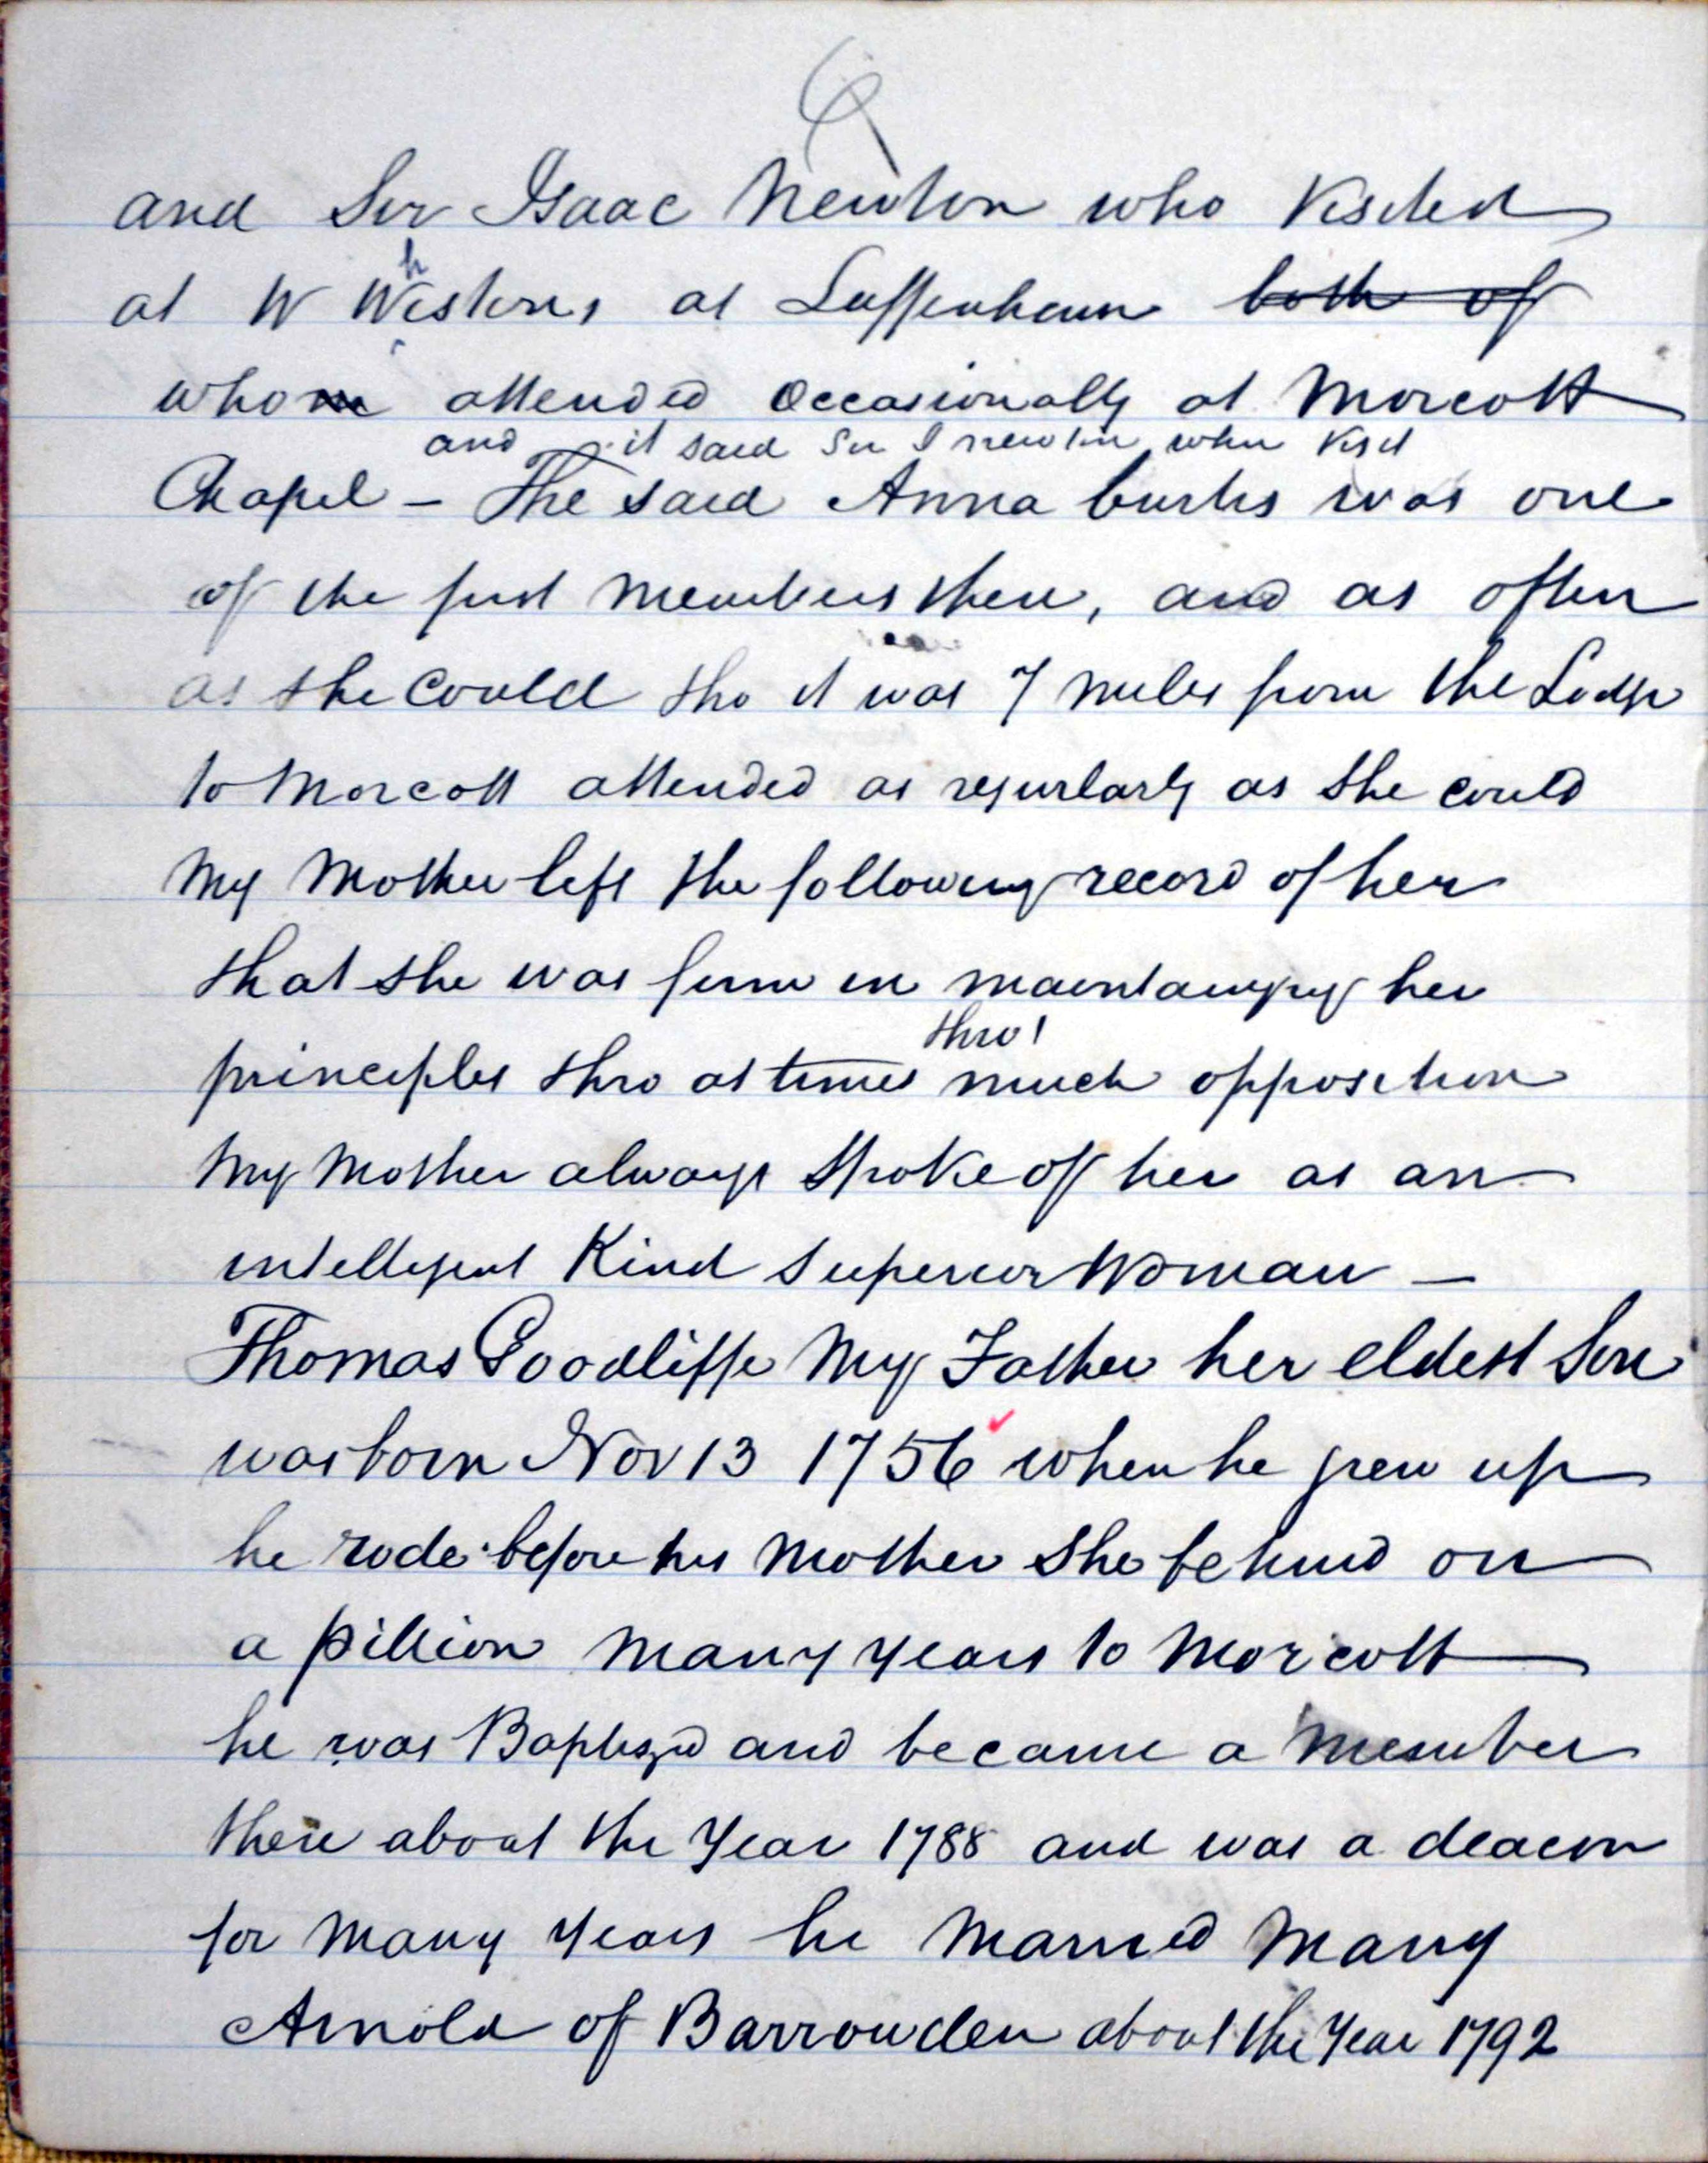 6
and Sir Isaac Newton who Visited
at W Whistons at Luffenham both of
whom attended Occasionally at Morcott
and it said Sir I Newton when Visit
Chapel – The said Anna Curtis was one
of the first members there, and as often
as she could tho it was 7 miles from the Lodge
to Morcott attended as regurlarly as she could
My Mother left the following record of her
that she was firm in maintaingng her
thro'
principles thro at times much opposition
My Mother always Spoke of her as an
intelligent Kind Superior Woman –
Thomas Goodliffe My Father her eldest Son
was born Nov 13 1756 when he grew up
he rode before his Mother She behind on
a pillion many years to Morcott
he was Baptized and became a Member
there about the Year 1788 and was a deacon
for Many Years he Married Mary
Arnold of Barrowden about the Year 1792